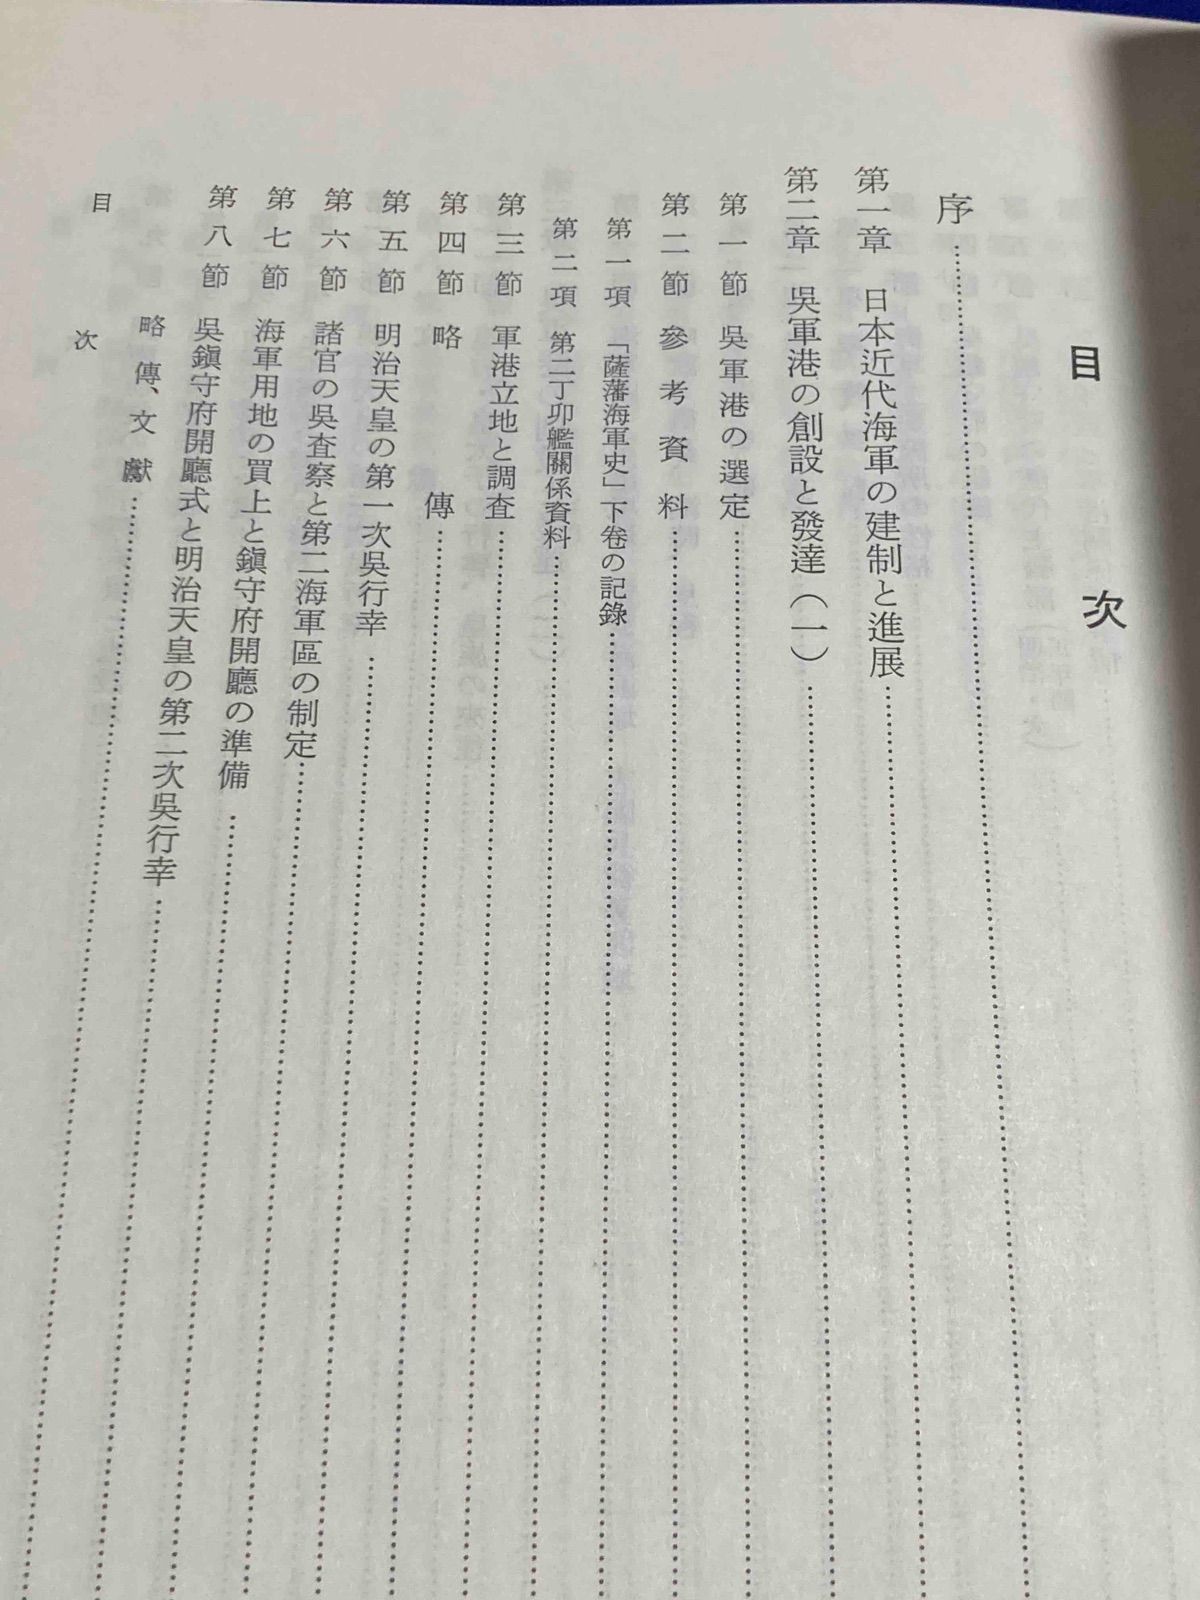 目次
序
第一章 日本近代海軍の建制と進展
第二章 吳軍港の創設と發達(一)
第一節 吳軍港の選定
第二節 參考資料
第一項 「薩藩海軍史」下卷の記錄
第二項 第二丁卯艦關係資料
第三節 軍港立地と調査
第四節 略傳
第五節 明治天皇の第一次吳行幸
第六節 諸官の吳査察と第二海軍區の制定
第七節 海軍用地の買上と鎭守府開廳の準備
第八節 吳鎭守府開廳式と明治天皇の第二次吳行幸
略傳、文獻
目次